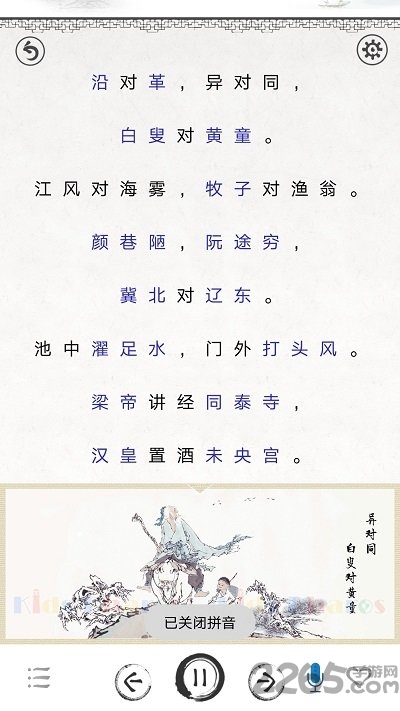 沿对革，异对同，
白叟对黄童。
江风对海雾，牧子对渔翁。
颜巷陋，阮途穷，
冀北对辽东。
池中濯足水，门外打头风。
梁帝讲经同泰寺，
汉皇置酒未央宫。
异对同
白叟对黄童
已关闭拼音
2265手游网
2265.COM